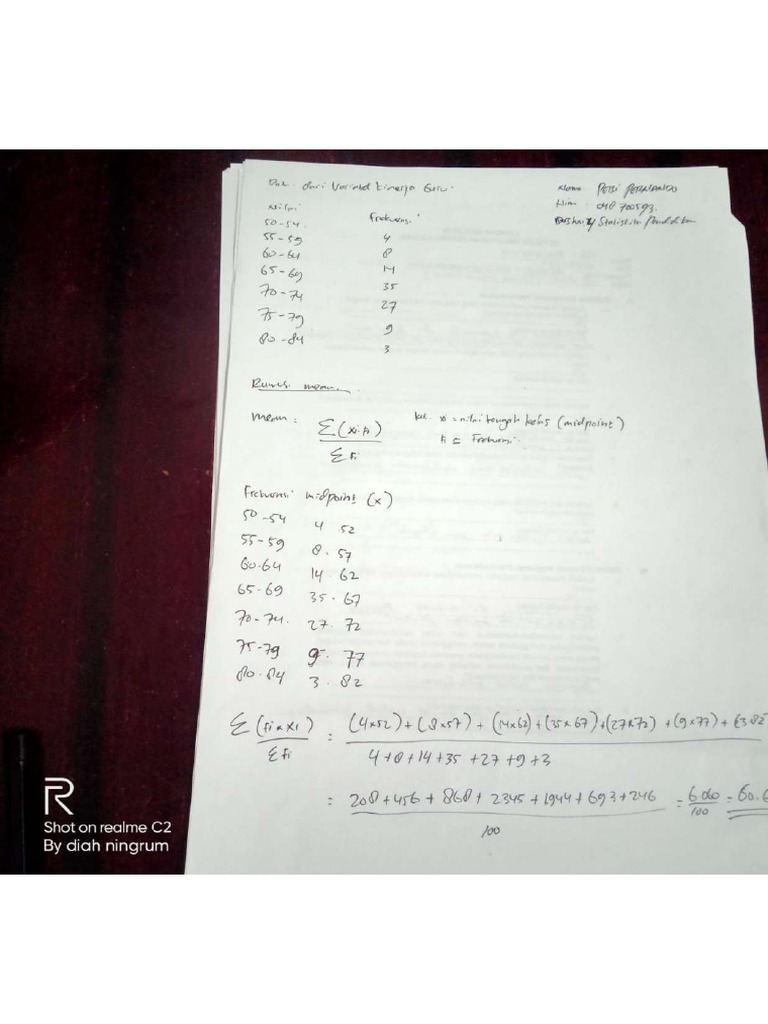 dari Variabel Kinerja Guru.
Nama : PETSI FERNANDO
Nim : 048700593.
Statistika Pendidikan
Nilai Frekuensi
50-54. 4
55-59 8
60-64 14
65-69 35
70-74 27
75-79 9
80-84 3
Rumus mean
mean = Σ(xi.fi)
Σfi
ket. xi = nilai tengah kelas (midpoint)
fi = Frekuensi.
Frekuensi midpoint (x)
50-54 4 52
55-59 8. 57
60-64 14 62
65-69 35. 67
70-74. 27. 72
75-79 9. 77
80-84 3. 82
Σ(fi x xi) = (4x52)+(8x57)+(14x62)+(35x67)+(27x72)+(9x77)+(3.82
Σfi 4+8+14+35+27+9+3
= 208+456+868+2345+1944+693+246 = 6060 = 60.6
100 100
Shot on realme C2
By diah ningrum